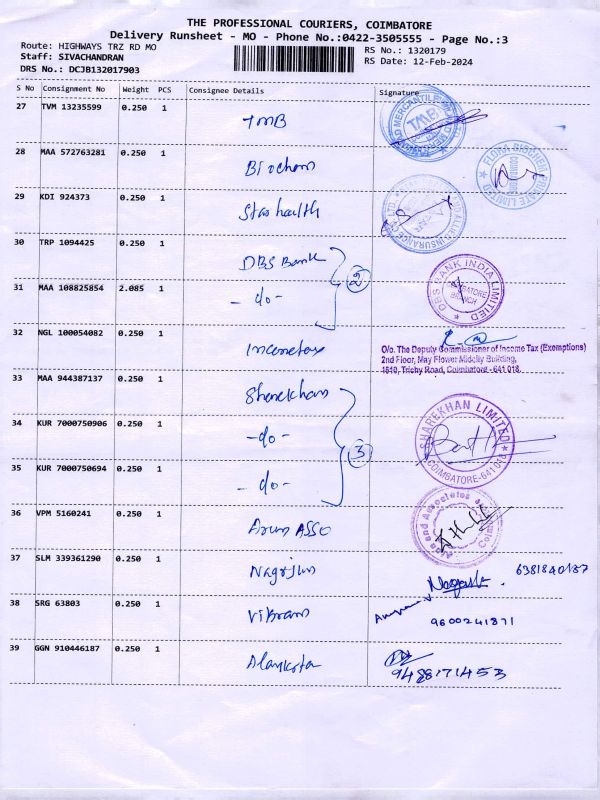 THE PROFESSIONAL COURIERS, COIMBATORE
Delivery Runsheet - MO - Phone No.:0422-3505555 - Page No.:3
Route: HIGHWAYS TRZ RD MO
RS No.: 1320179
Staff: SIVACHANDRAN
RS Date: 12-Feb-2024
DRS No.: DCJB132017903
S No Consignment No Weight PCS Consignee Details Signature
27 TVM 13235599 0.250 1 TMB
TMB
28 MAA 572763281 0.250 1 Biochem
COIMBATORE
29 KDI 924373 0.250 1 Starhealth
30 TRP 1094425 0.250 1 DBS Bank
31 MAA 108825854 2.085 1 -do- 2
DBS BANK INDIA LIMITED
COIMBATORE BRANCH
32 NGL 100054082 0.250 1 Incometax
O/o. The Deputy Commissioner of Income Tax (Exemptions)
2nd Floor, May Flower Midcity Building,
1510, Trichy Road, Coimbatore - 641 018.
33 MAA 944387137 0.250 1 Sharekhan
34 KUR 7000750906 0.250 1 -do- 3
SHAREKHAN LIMITED
COIMBATORE-641018
35 KUR 7000750694 0.250 1 -do-
36 VPM 5160241 0.250 1 Arun ASSO
37 SLM 339361290 0.250 1 Nagrjun
6381840187
38 SRG 63803 0.250 1 Vikram
9600241871
39 GGN 910446187 0.250 1
9488171453